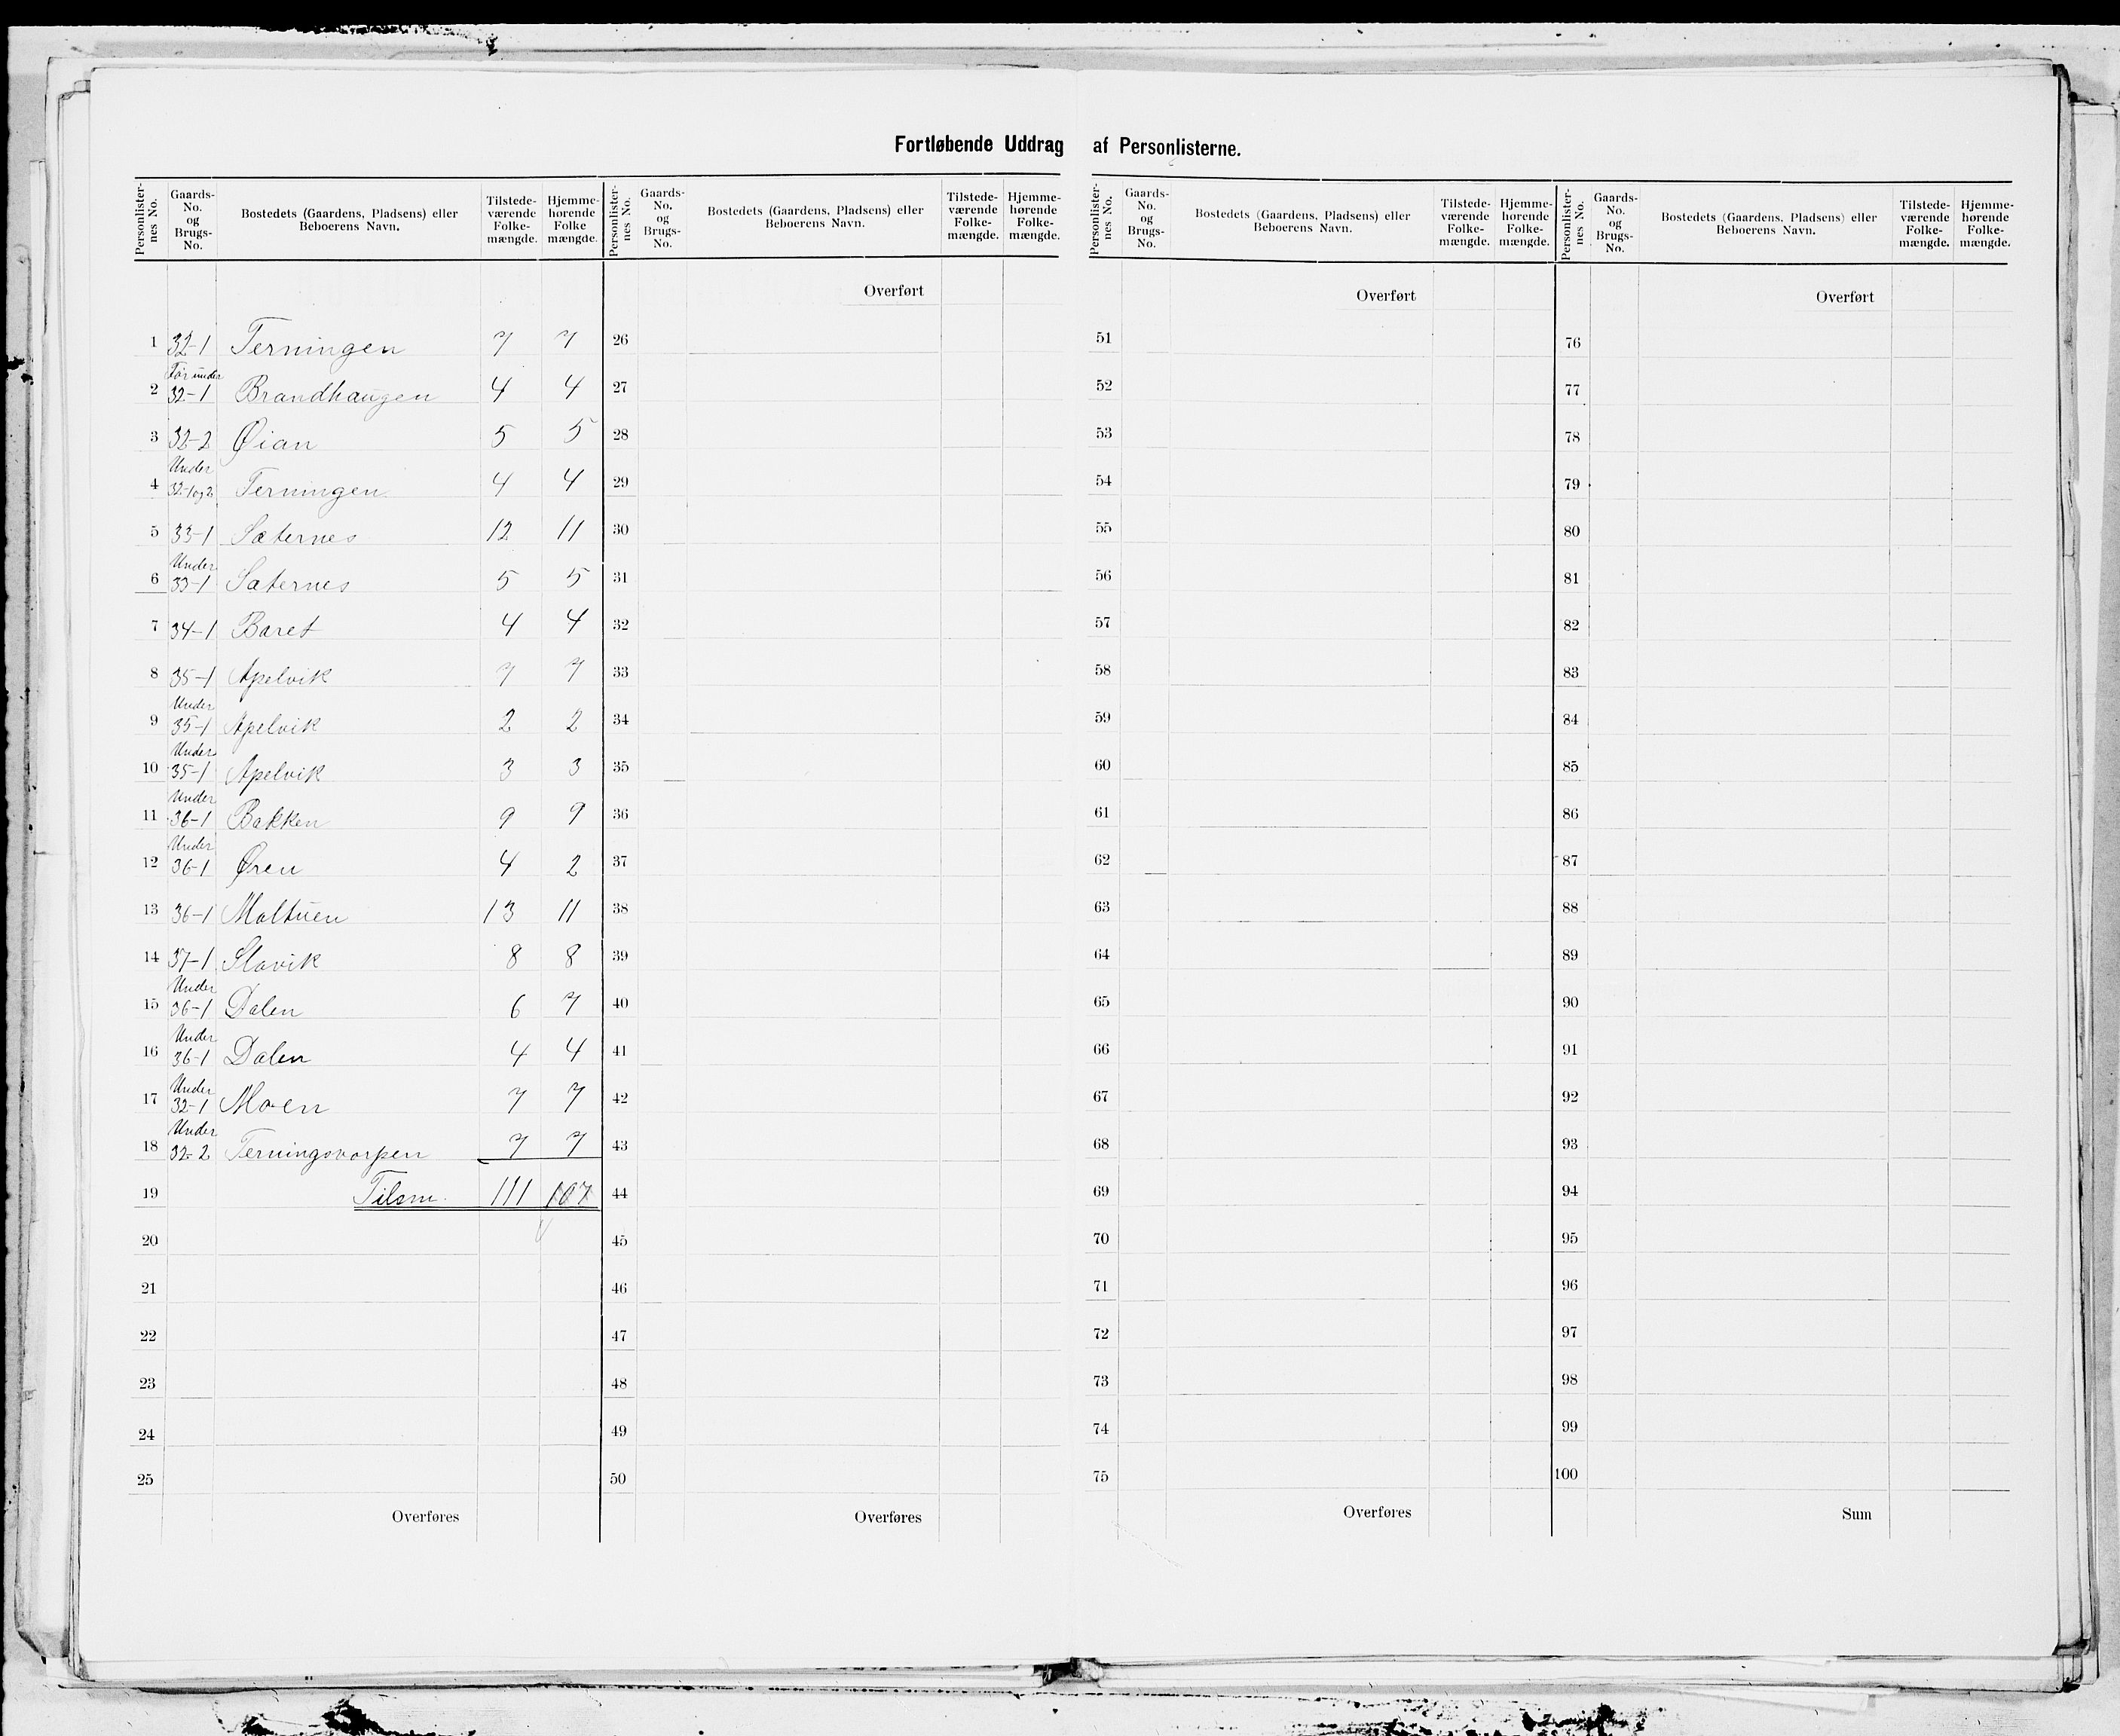 Fortløbende Uddrag af Personlisterne.
Personlister-nes No. Gaards-No. og Brugs-No. Bostedets (Gaardens, Pladsens) eller Beboerens Navn. Tilstede-værende Folke-mængde. Hjemme-hørende Folke mængde.
Personlister-nes No. Gaards-No. og Brugs-No. Bostedets (Gaardens, Pladsens) eller Beboerens Navn. Tilstede-værende Folke-mængde. Hjemme-hørende Folke-mængde.
Personlister-nes No. Gaards-No. og Brugs-No. Bostedets (Gaardens, Pladsens) eller Beboerens Navn. Tilstede-værende Folke-mængde. Hjemme-hørende Folke-mængde.
Personlister-nes No. Gaards-No. og Brugs-No. Bostedets (Gaardens, Pladsens) eller Beboerens Navn. Tilstede-værende Folke-mængde. Hjemme-hørende Folke-mængde.
1 32-1 Terningen 7 7
2 under 32-1 Brandhaugen 4 4
3 32-2 Øian 5 5
4 Under 32-1og2 Terningen 4 4
5 33-1 Sæternes 12 11
6 Under 33-1 Sæternes 5 5
7 34-1 Baret 4 4
8 35-1 Apelvik 7 7
9 Under 35-1 Apelvik 2 2
10 Under 35-1 Apelvik 3 3
11 Under 36-1 Bakken 9 9
12 Under 36-1 Øren 4 2
13 36-1 Maltuen 13 11
14 37-1 Slavik 8 8
15 Under 36-1 Dalen 6 7
16 Under 36-1 Dalen 4 4
17 Under 32-1 Moen 7 7
18 Under 32-2 Terningsvarpen 7 7
19 Tilsm. 111 107
20
21
22
23
24
25
Overføres
Overført
26
27
28
29
30
31
32
33
34
35
36
37
38
39
40
41
42
43
44
45
46
47
48
49
50
Overføres
Overført
51
52
53
54
55
56
57
58
59
60
61
62
63
64
65
66
67
68
69
70
71
72
73
74
75
Overføres
Overført
76
77
78
79
80
81
82
83
84
85
86
87
88
89
90
91
92
93
94
95
96
97
98
99
100
Sum